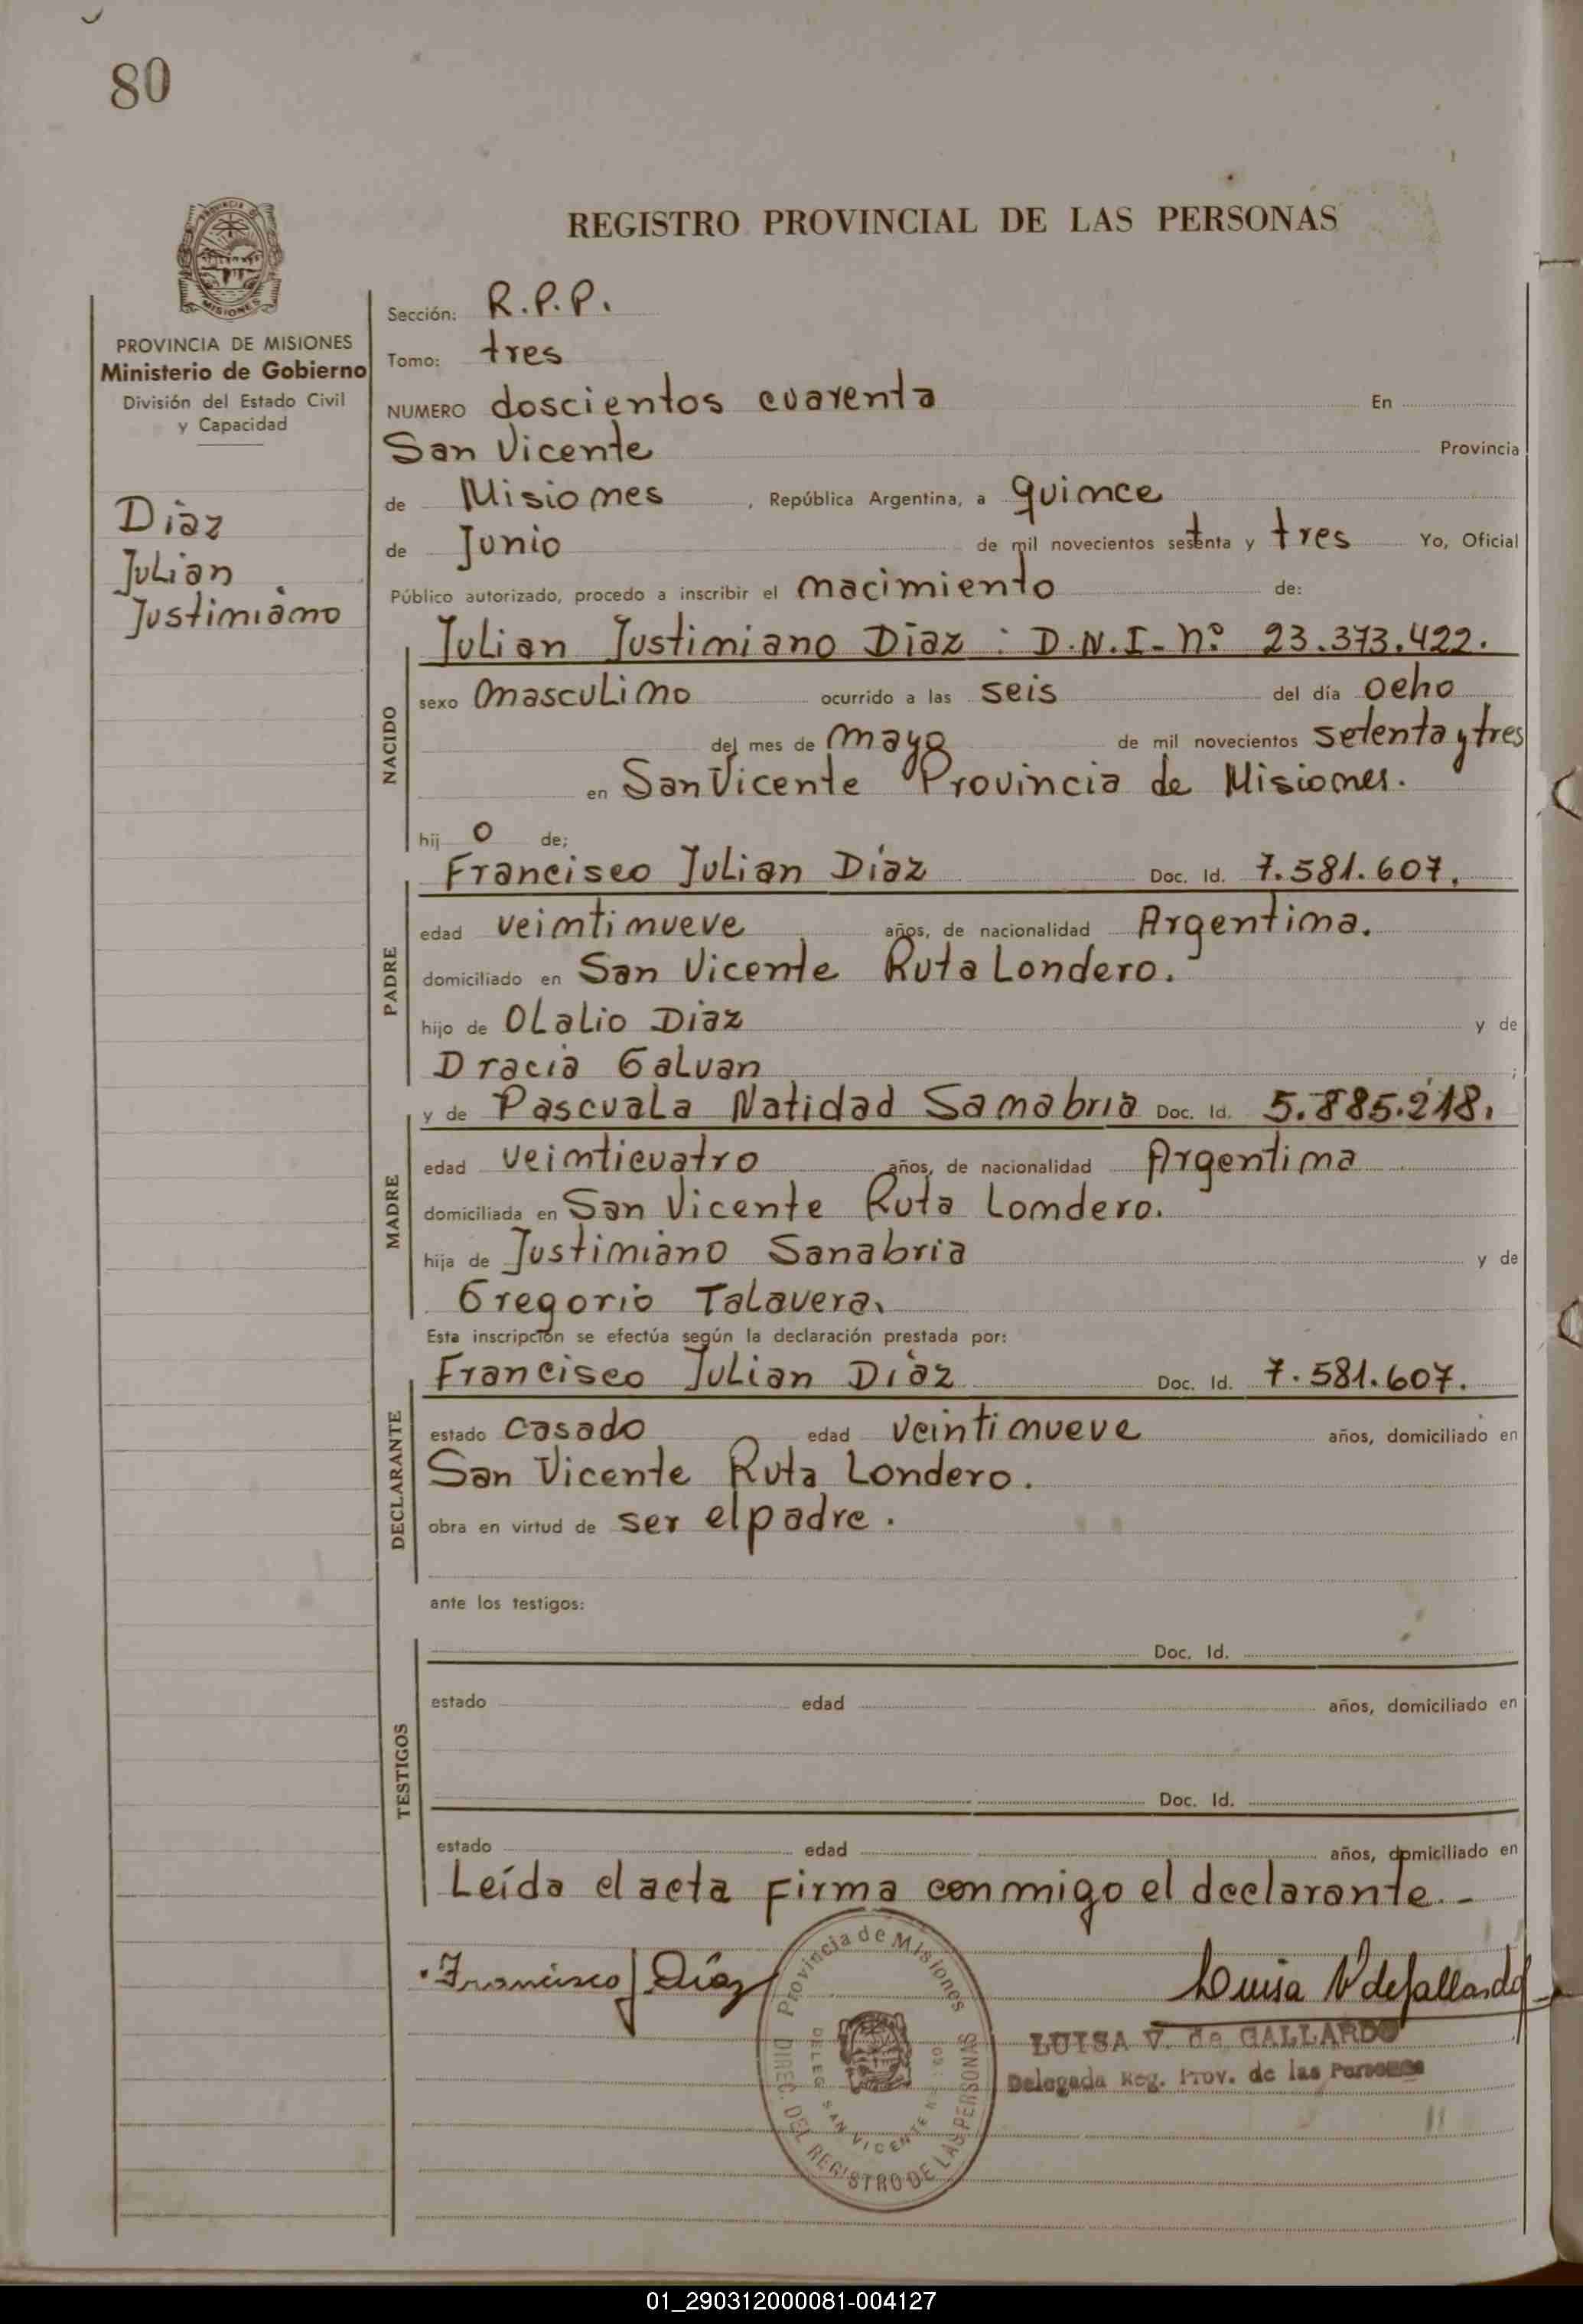 80
REGISTRO PROVINCIAL DE LAS PERSONAS
PROVINCIA DE MISIONES
Ministerio de Gobierno
División del Estado Civil
y Capacidad
Diaz
Julian
Justiniano
Sección: R.P.P.
Tomo: tres
NUMERO doscientos cuarenta En
San Vicente Provincia
de Misiones, República Argentina, a quince
de Junio de mil novecientos setenta y tres Yo, Oficial
Público autorizado, procedo a inscribir el nacimiento de:
NACIDO
Julian Justiniano Diaz : D.N.I- nº 23.373.422.
sexo masculino ocurrido a las seis del día ocho
del mes de mayo de mil novecientos setenta y tres
en San Vicente Provincia de Misiones.
hij o de;
PADRE
Francisco Julian Díaz Doc. Id. 7.581.607.
edad veintinueve años, de nacionalidad Argentina.
domiciliado en San Vicente Ruta Londero.
hijo de Olalio Diaz y de
Dracia Galvan ;
MADRE
y de Pascuala Natidad Sanabria Doc. Id. 5.885.218.
edad veinticuatro años, de nacionalidad Argentina
domiciliada en San Vicente Ruta Londero.
hija de Justiniano Sanabria y de
Gregorio Talavera.
Esta inscripción se efectúa según la declaración prestada por:
DECLARANTE
Francisco Julian Díaz Doc. Id. 7.581.607.
estado casado edad veintinueve años, domiciliado en
San Vicente Ruta Londero.
obra en virtud de ser el padre.
ante los testigos:
TESTIGOS
Doc. Id.
estado edad años, domiciliado en
Doc. Id.
estado edad años, domiciliado en
Leída el acta firma conmigo el declarante.-
Francisco J Díaz
Luisa V de Gallardo
LUISA V. de GALLARDO
Delegada Reg. Prov. de las Personas
Provincia de Misiones
DIREC. DEL REGISTRO DE LAS PERSONAS
DELEG. SAN VICENTE
01_290312000081-004127